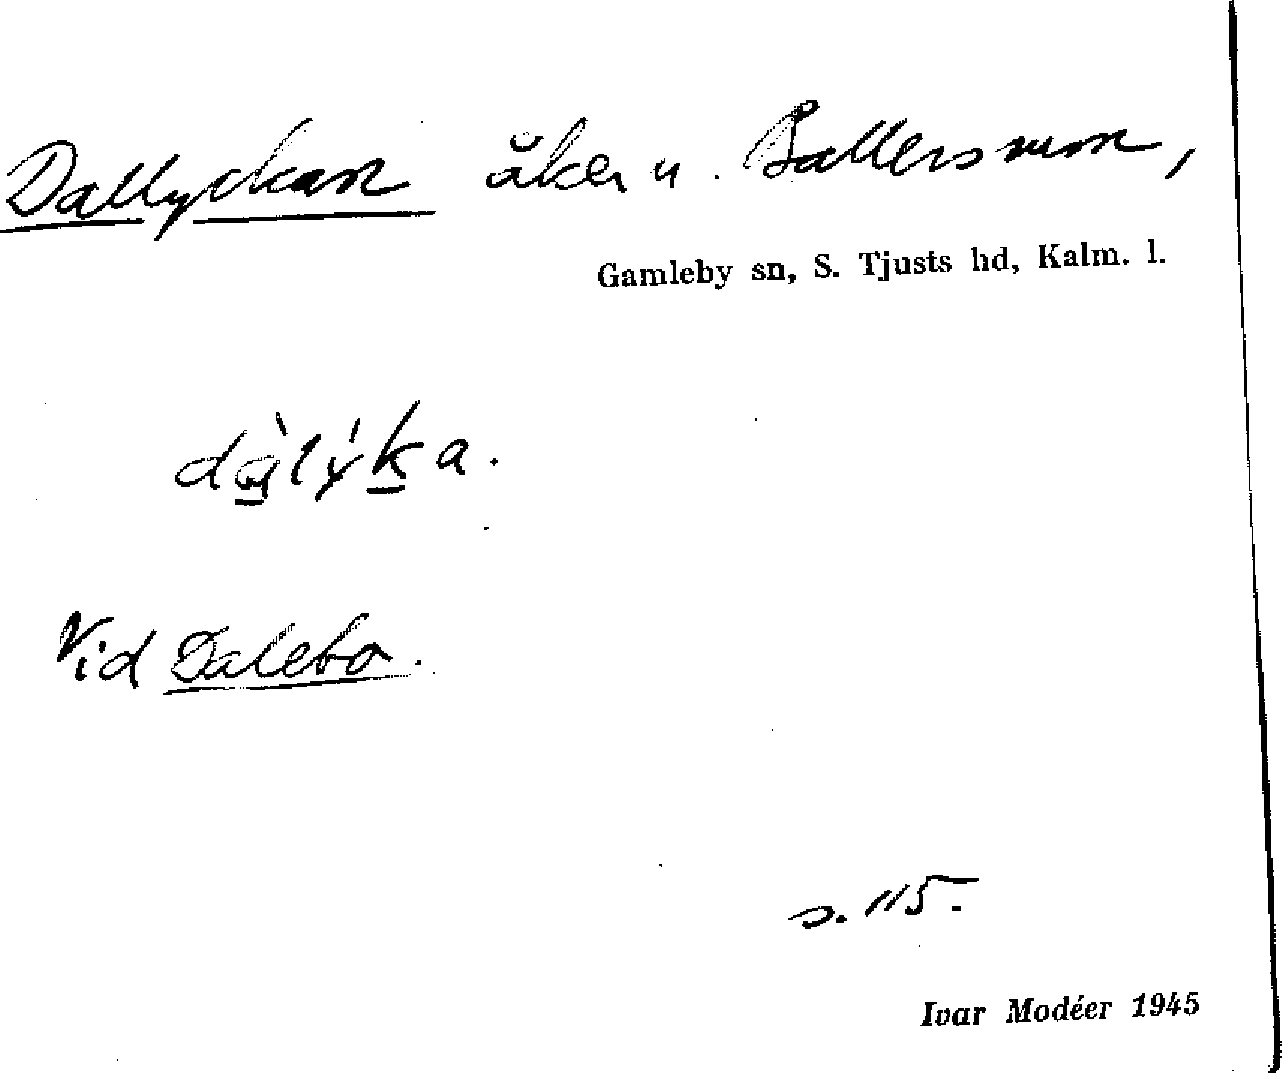 Dallyckan åker u. Ballersrum,
Gamleby sn, S. Tjusts hd, Kalm. l.
Vid Dalebo.
s. 115.
Ivar Modéer 1945